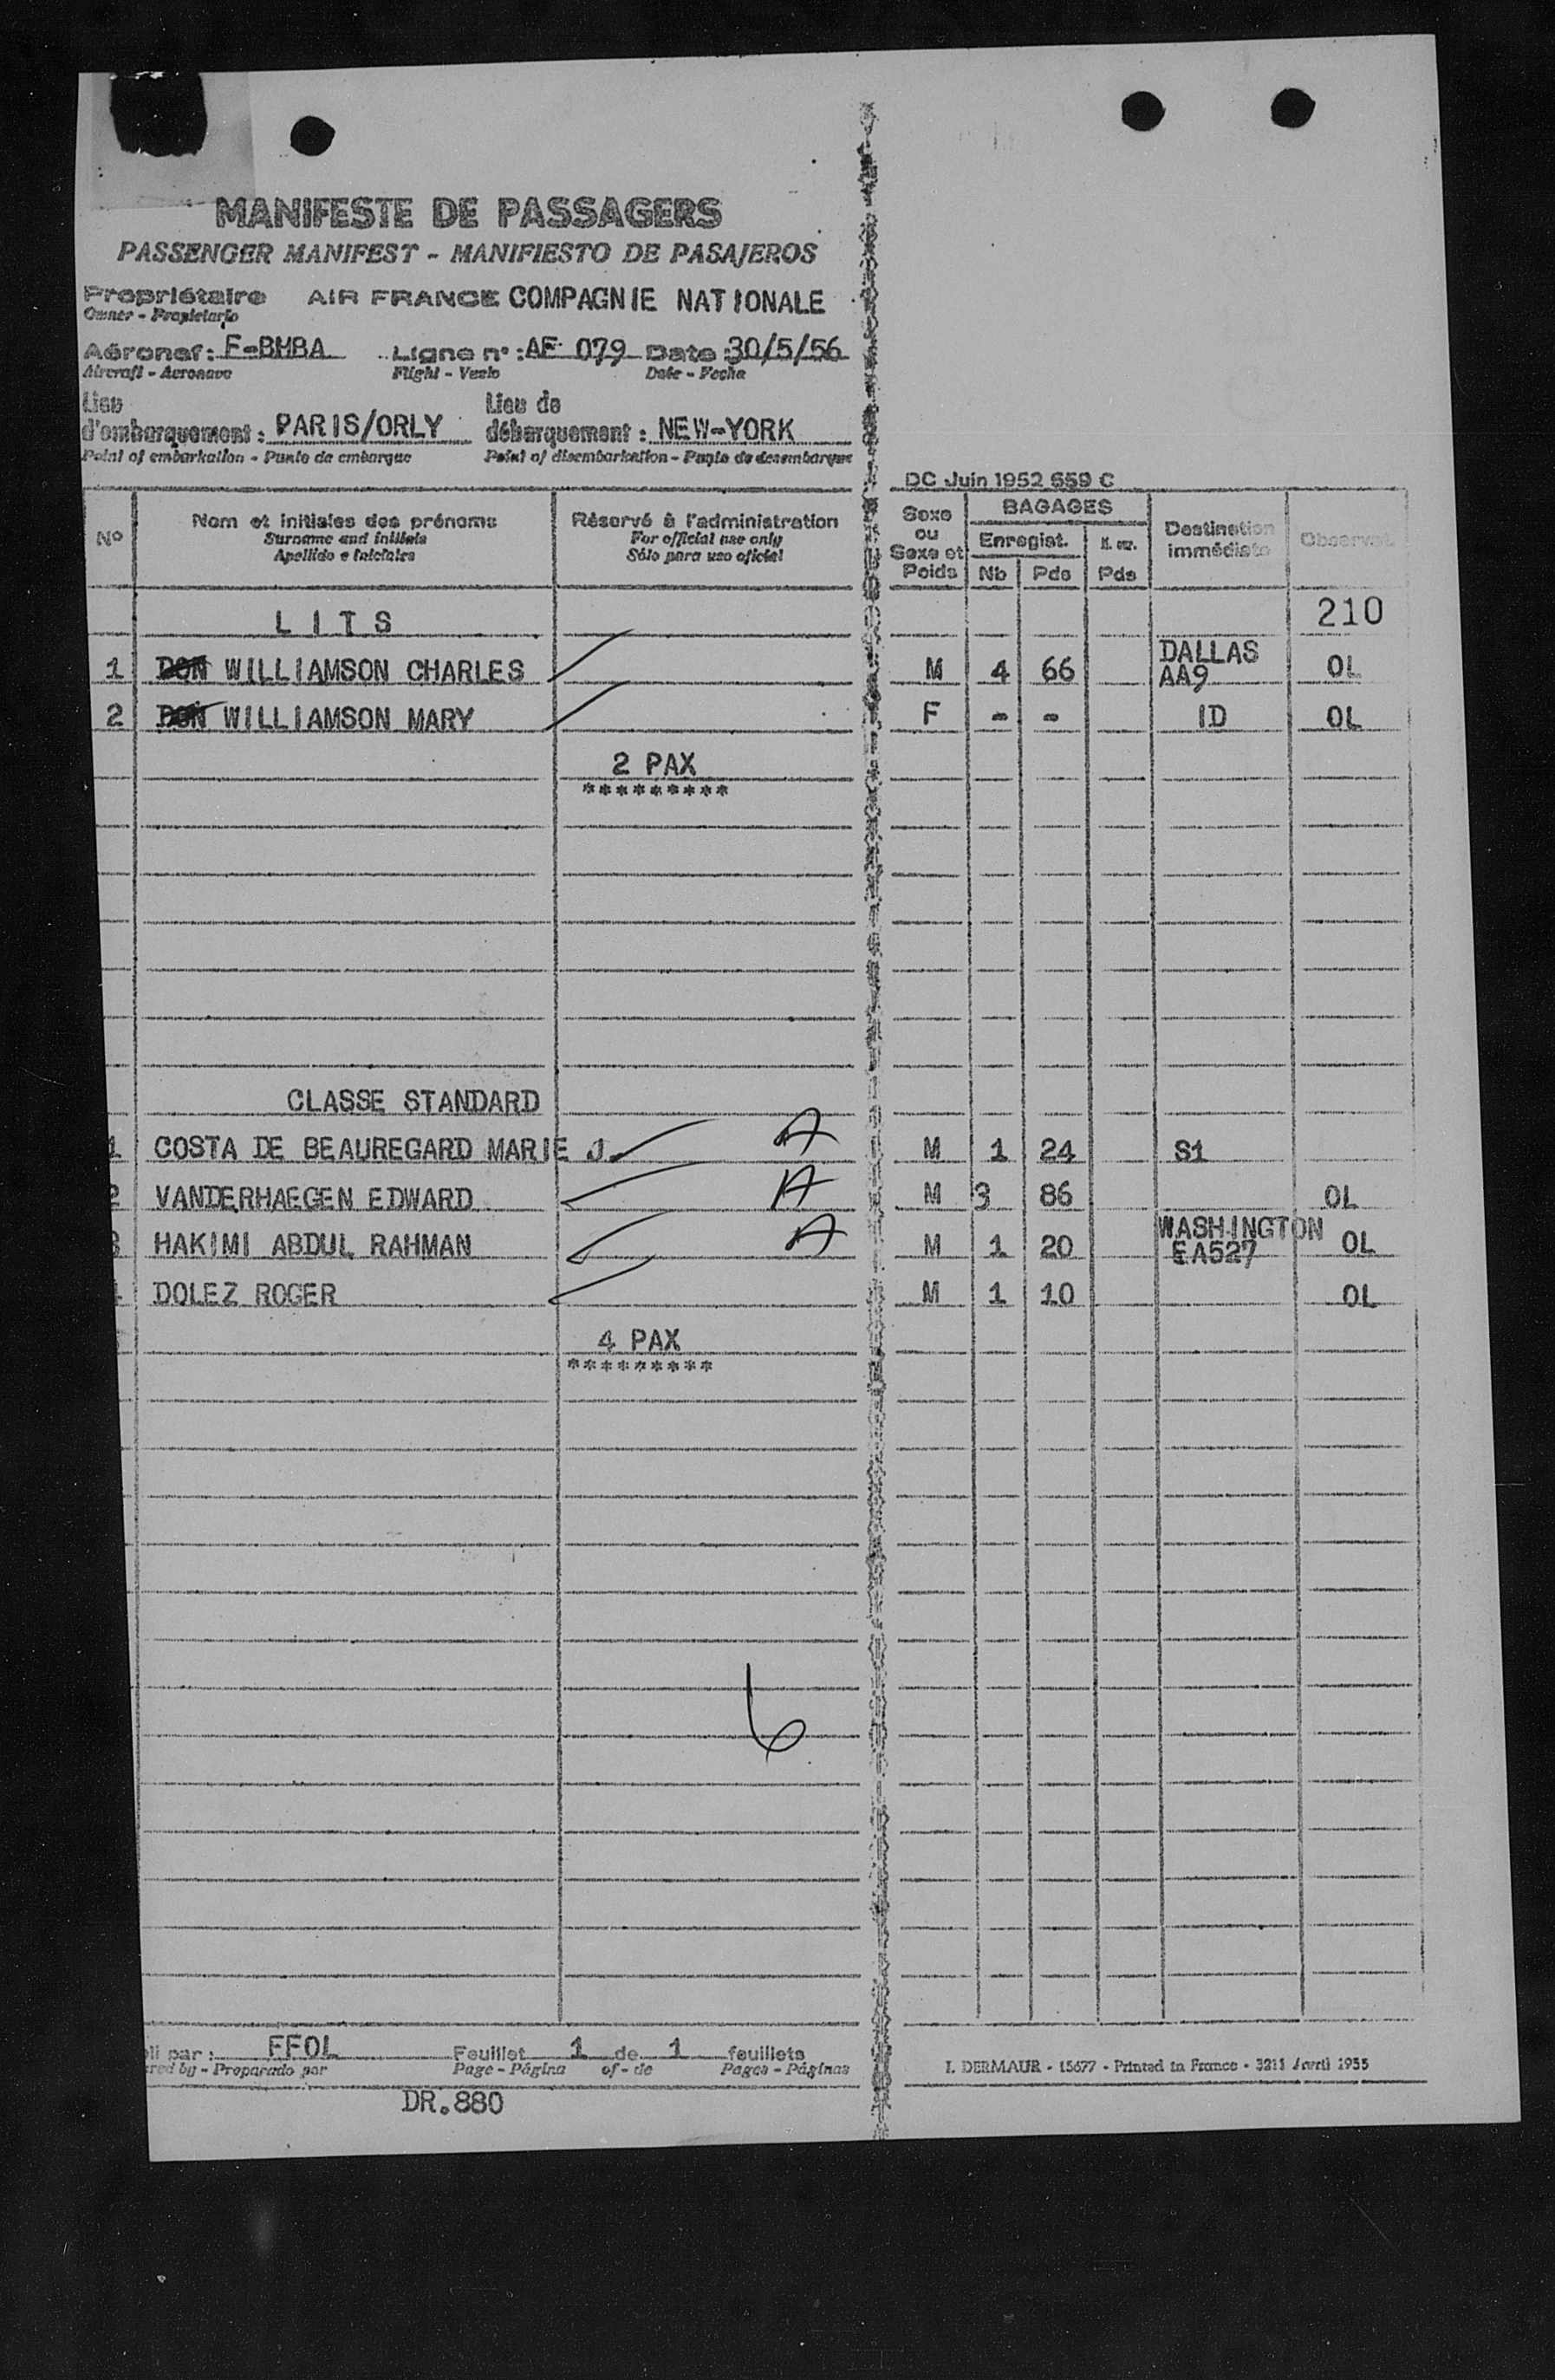 MANIFESTE DE PASSAGERS
PASSENGER MANIFEST - MANIFIESTO DE PASAJEROS
Propriétaire AIR FRANCE COMPAGNIE NATIONALE
Owner - Propietario
Aéronef : F-BHBA Ligne n° : AF 079 Date : 30/5/56
Aircraft - Aeronave Flight - Vuelo Date - Fecha
Lieu Lieu de
d'embarquement : PARIS/ORLY débarquement : NEW-YORK
Point of embarkation - Punto de embarque Point of disembarkation - Punto de desembarque
DC Juin 1952 659 C
N° Nom et initiales des prénoms Réservé à l'administration Sexe BAGAGES Destination Observat.
Surname and initials For official use only ou Enregist. immédiate
Apellido e iniciales Sólo para uso oficial Sexe et
Poids Nb Pds Pds
LITS 210
DALLAS
1 DON WILLIAMSON CHARLES M 4 66 AA9 OL
2 DON WILLIAMSON MARY F - - ID OL
2 PAX
*********
CLASSE STANDARD
1 COSTA DE BEAUREGARD MARIE J. A M 1 24 S1
2 VANDERHAEGEN EDWARD A M 3 86 OL
WASHINGTON
3 HAKIMI ABDUL RAHMAN A M 1 20 EA527 OL
DOLEZ ROGER M 1 10 OL
4 PAX
*********
6
li par : FFOL Feuillet 1 de 1 feuillets
red by - Preparado por Page - Página of - de Pages - Páginas
I. DERMAUR - 15677 - Printed in France - 3211 Avril 1955
DR.880